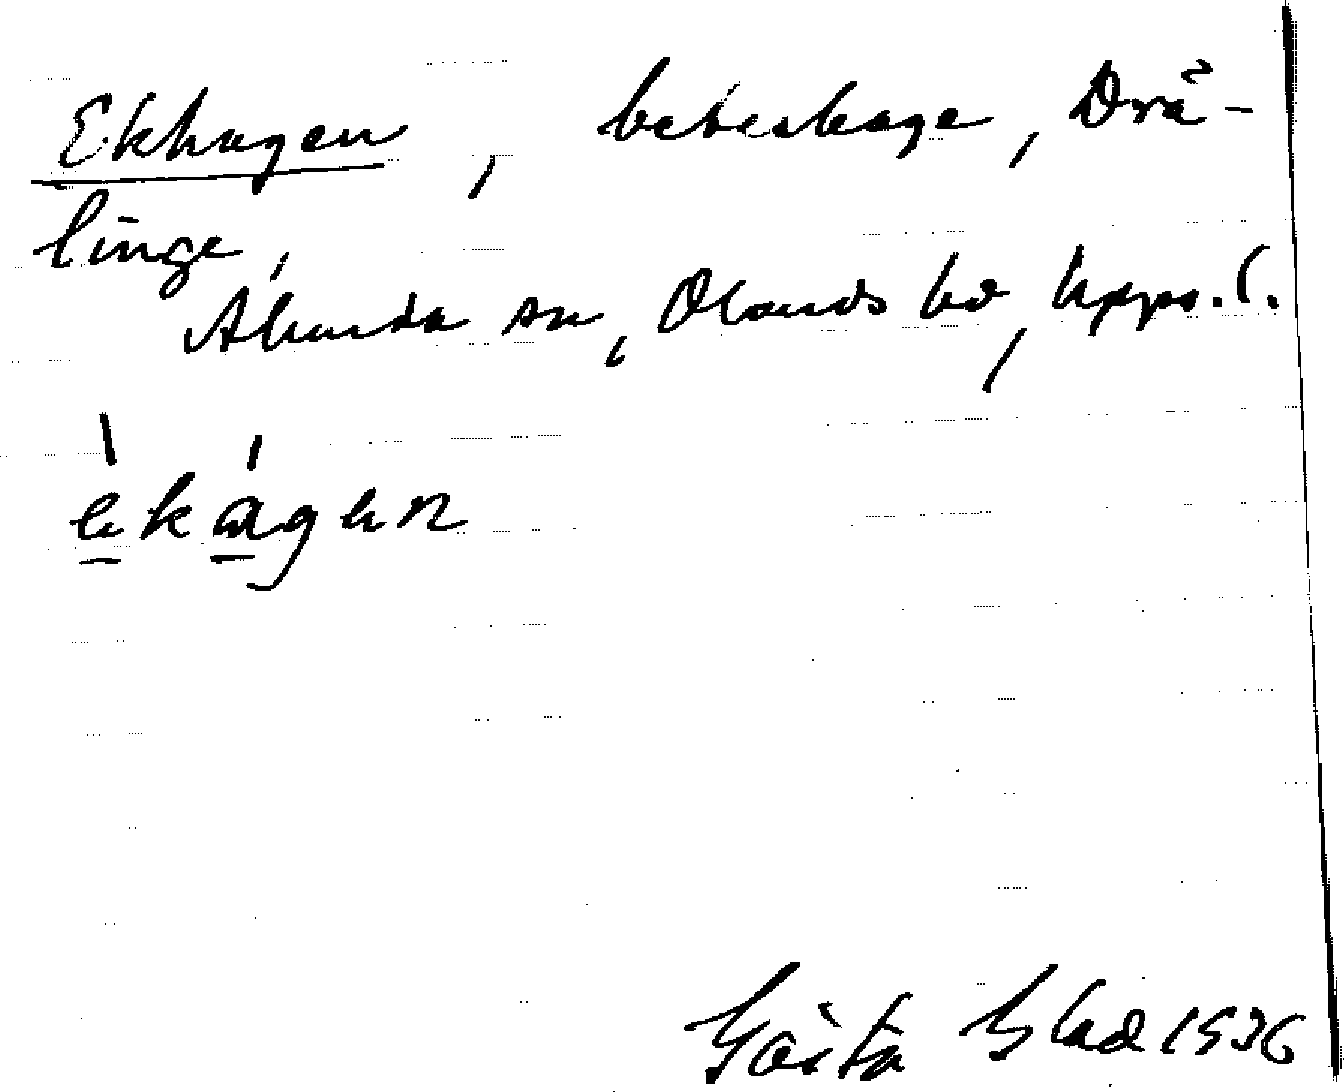 Ekhagen, beteshage, Drä-
linge,
Alunda sn, Olands hd, Upps. l.
èkágen
Gösta Blad 1936